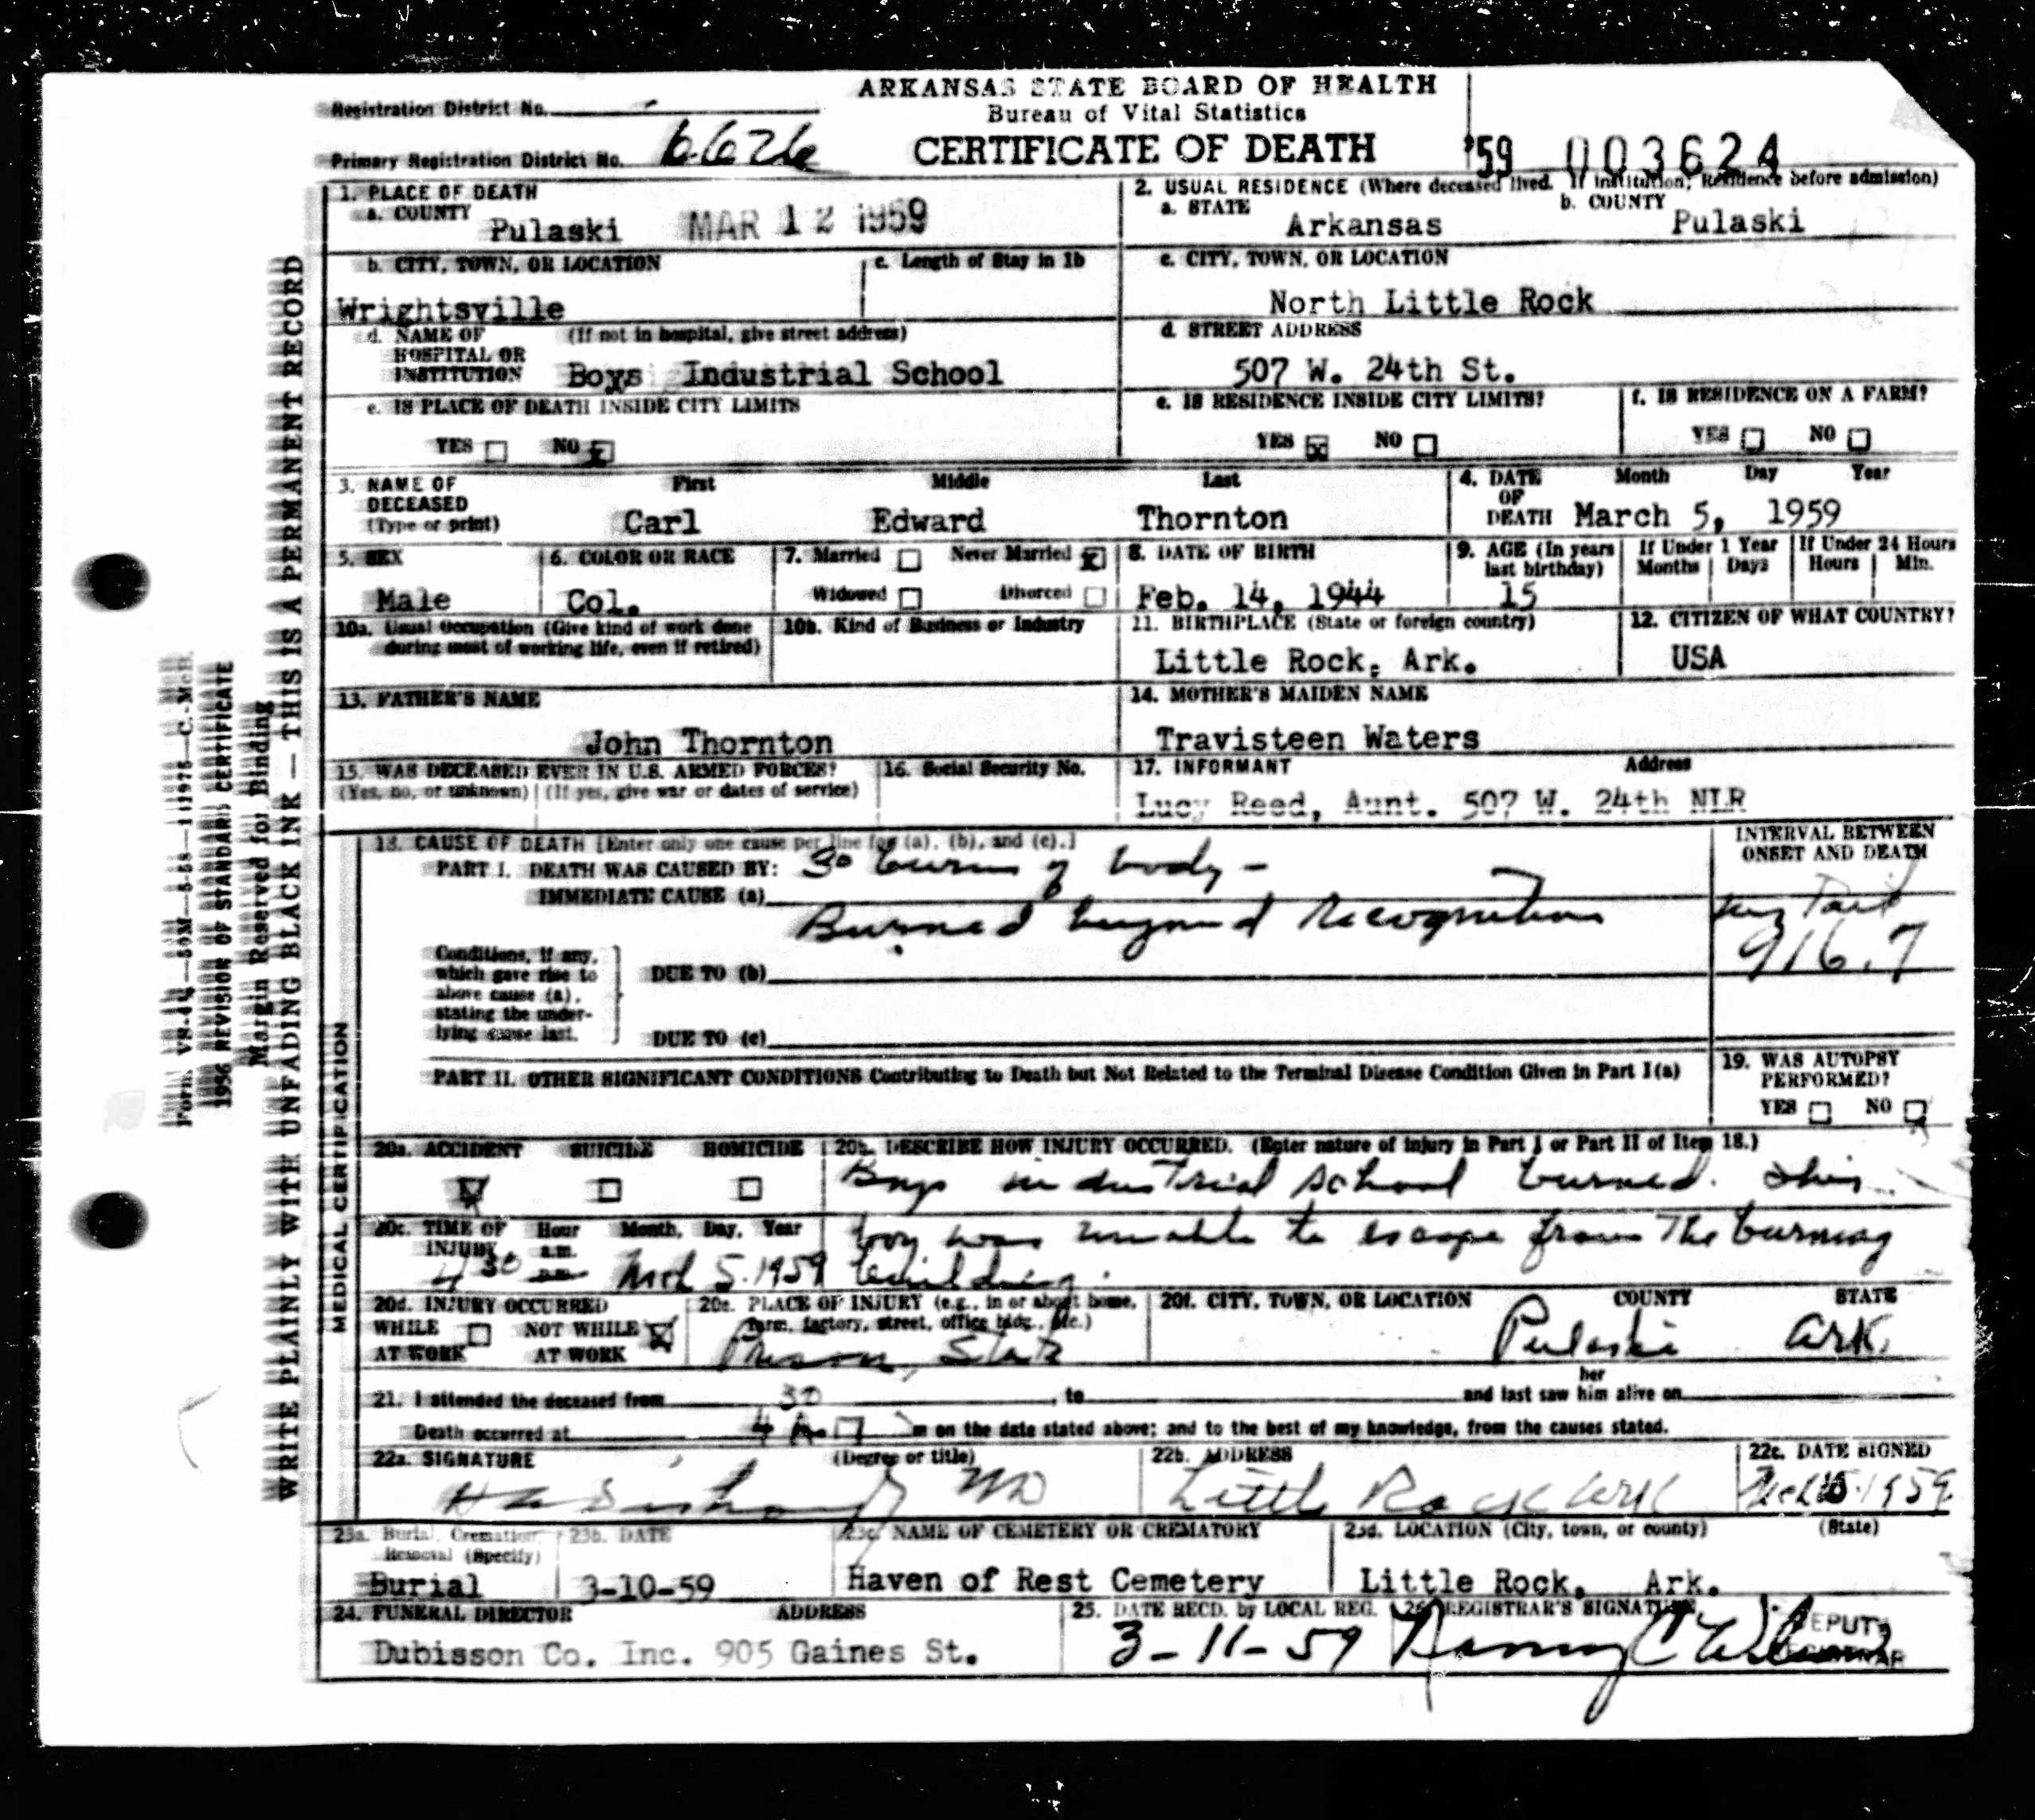 ARKANSAS STATE BOARD OF HEALTH
Bureau of Vital Statistics
CERTIFICATE OF DEATH
Registration District No.
Primary Registration District No. 6626
'59 003624
1. PLACE OF DEATH
a. COUNTY
Pulaski MAR 12 1959
2. USUAL RESIDENCE (Where deceased lived. If institution; Residence before admission)
a. STATE Arkansas
b. COUNTY Pulaski
b. CITY, TOWN, OR LOCATION
Wrightsville
c. Length of Stay in 1b
c. CITY, TOWN, OR LOCATION
North Little Rock
d. NAME OF (If not in hospital, give street address)
HOSPITAL OR
INSTITUTION Boys Industrial School
d. STREET ADDRESS
507 W. 24th St.
e. IS PLACE OF DEATH INSIDE CITY LIMITS
YES NO
e. IS RESIDENCE INSIDE CITY LIMITS?
YES NO
f. IS RESIDENCE ON A FARM?
YES NO
3. NAME OF DECEASED
(Type or print)
First Middle Last
Carl Edward Thornton
4. DATE OF DEATH
Month Day Year
March 5, 1959
5. SEX
Male
6. COLOR OR RACE
Col.
7. Married Never Married
Widowed Divorced
8. DATE OF BIRTH
Feb. 14, 1944
9. AGE (In years last birthday)
15
If Under 1 Year
Months Days
If Under 24 Hours
Hours Min.
10a. Usual Occupation (Give kind of work done
during most of working life, even if retired)
10b. Kind of Business or Industry
11. BIRTHPLACE (State or foreign country)
Little Rock, Ark.
12. CITIZEN OF WHAT COUNTRY?
USA
13. FATHER'S NAME
John Thornton
14. MOTHER'S MAIDEN NAME
Travisteen Waters
15. WAS DECEASED EVER IN U.S. ARMED FORCES?
(Yes, no, or unknown) (If yes, give war or dates of service)
16. Social Security No.
17. INFORMANT Address
Lucy Reed, Aunt. 507 W. 24th NLR
18. CAUSE OF DEATH [Enter only one cause per line for (a), (b), and (c).]
PART I. DEATH WAS CAUSED BY: 3° burns of body -
IMMEDIATE CAUSE (a)
Burned beyond recognition
INTERVAL BETWEEN
ONSET AND DEATH
916.7
Conditions, if any,
which gave rise to
above cause (a),
stating the under-
lying cause last.
DUE TO (b)
DUE TO (c)
PART II. OTHER SIGNIFICANT CONDITIONS Contributing to Death but Not Related to the Terminal Disease Condition Given in Part I(a)
19. WAS AUTOPSY
PERFORMED?
YES NO
20a. ACCIDENT SUICIDE HOMICIDE
20b. DESCRIBE HOW INJURY OCCURRED. (Enter nature of injury in Part I or Part II of Item 18.)
Boys industrial school burned. This
boy was unable to escape from the burning
building.
20c. TIME OF INJURY
Hour Month, Day, Year
a.m.
p.m.
4 30 Mch 5. 1959
20d. INJURY OCCURRED
WHILE AT WORK
NOT WHILE AT WORK
20e. PLACE OF INJURY (e.g., in or about home,
farm, factory, street, office bldg., etc.)
Prison, State
20f. CITY, TOWN, OR LOCATION COUNTY STATE
Pulaski Ark.
21. I attended the deceased from , to and last saw her him alive on
Death occurred at 4 30 m on the date stated above; and to the best of my knowledge, from the causes stated.
22a. SIGNATURE (Degree or title)
MD
22b. ADDRESS
Little Rock Ark
22c. DATE SIGNED
1959
23a. Burial, Cremation,
Removal (Specify)
Burial
23b. DATE
3-10-59
23c. NAME OF CEMETERY OR CREMATORY
Haven of Rest Cemetery
23d. LOCATION (City, town, or county) (State)
Little Rock, Ark.
24. FUNERAL DIRECTOR ADDRESS
Dubisson Co. Inc. 905 Gaines St.
25. DATE RECD. by LOCAL REG.
3-11-59
26. REGISTRAR'S SIGNATURE
DEPUTY
REGISTRAR
MEDICAL CERTIFICATION
WRITE PLAINLY WITH UNFADING BLACK INK — THIS IS A PERMANENT RECORD
Margin Reserved for Binding
1956 REVISION OF STANDARD CERTIFICATE